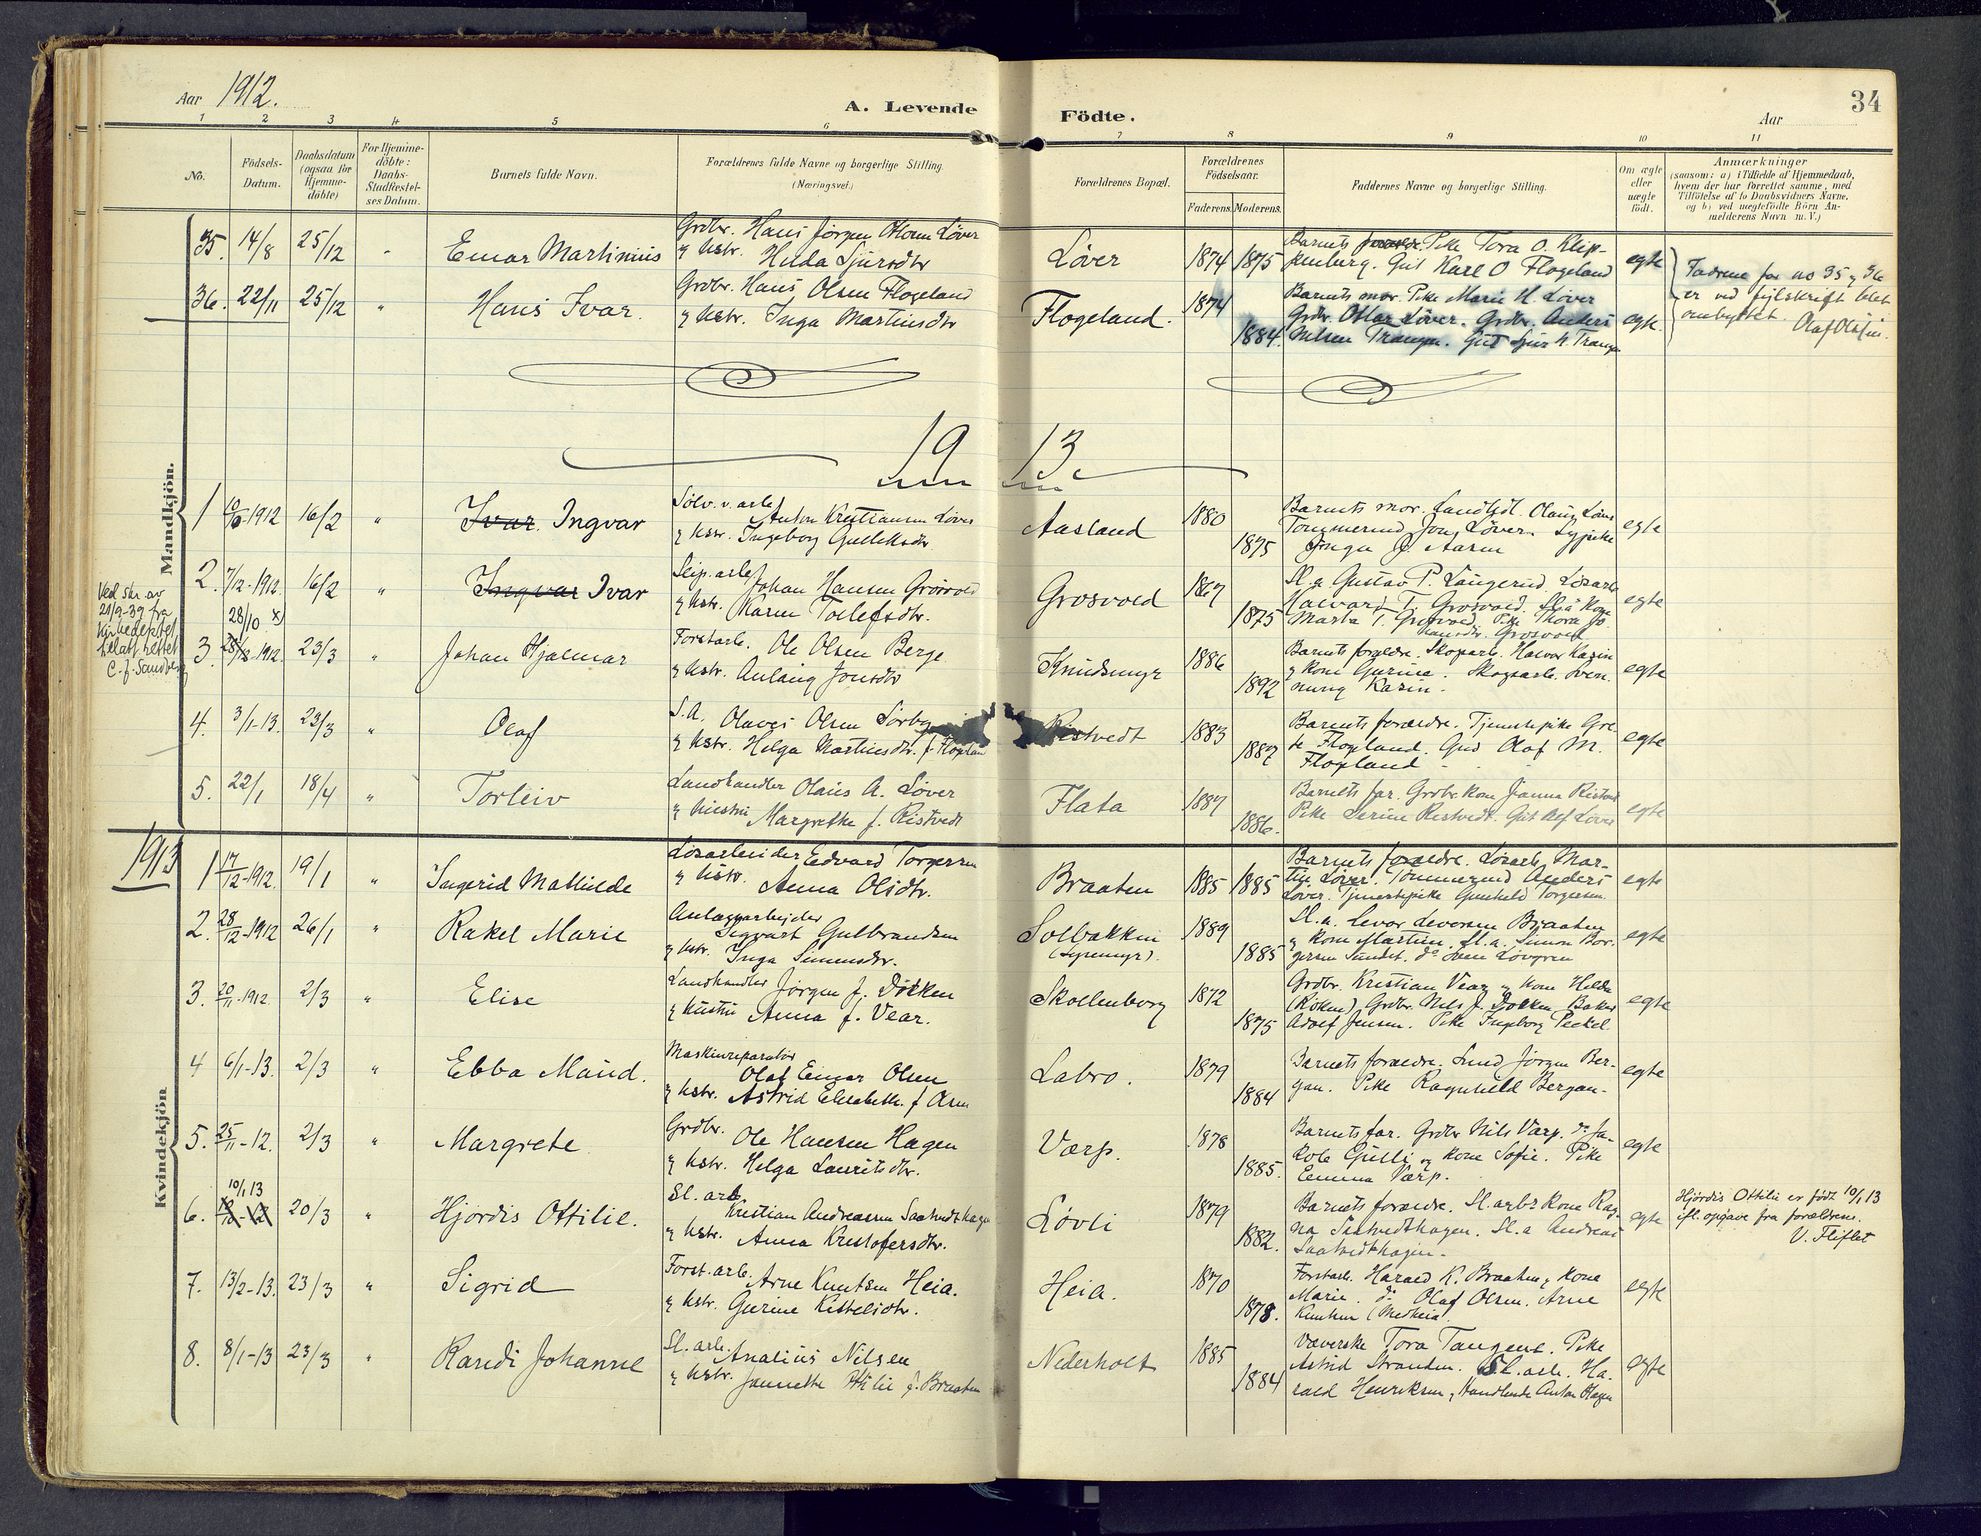 Aar 1912.
A. Levende Födte.
34
Aar
1 2 3 4 5 6 7 8 9 10 11
No.
Födsels-
Datum.
Daabsdatum
(ogsaa for
Hjemme-
döbte)
For Hjemme-
döbte:
Daabs-
Stadfæstel-
ses Datum.
Barnets fulde Navn.
Forældrenes fulde Navne og borgerlige Stilling.
(Næringsvei.)
Forældrenes Bopæl.
Forældrenes
Födselsaar.
Faderens. Moderens.
Faddernes Navne og borgerlige Stilling.
Om ægte
eller
uægte
födt.
Anmærkninger
(saasom: a) i Tilfælde af Hjemmedaab,
hvem der har forrettet samme, med
Tilföielse af to Daabsvidners Navne,
og b) ved uægtefödte Börn An-
melderens Navn m. V.)
Mandkjön.
35. 14/8 25/12 " Einar Martinius
Grdbr. Hans Jörgen Olsen Löver
og hstr. Hilda Sjursdtr
Löver 1874 1875
Barnets Pike Tora O. Klip-
penberg. Gut Karl O Flogeland
egte
Fadrene for no 35 og 36
er ved fejlskrift blet
ombyttet. Olaf Olsen.
36. 22/11 25/12 " Hans Ivar.
Grdbr. Hans Olsen Flogeland
og hstr. Inga Martinsdtr
Flogeland. 1874 1884.
Barnets mor. Pike Marie H. Löver
Grdbr. Ottar Löver. Grdbr. Anders
Nilsen Trangen. Gut Sjur H. Trangen
egte.
1913.
1 10/10-1912 16/2 " Ivar. Ingvar
Sölv.v.arb. Anton Kristiansen Löver
og hstr. Ingeborg Gulliksdtr
Aasland 1880 1875
Barnets mor. Landhdl. Olaus Löver
Tömmermd Jon Löver.
Inga J. Aasen
egte
2. 7/12-1912. 16/2 " Ingvar Ivar
Johan Hansen Grosvold
og hstr. Karen Tollefsdtr.
Grosvold 1867 1875
Sl.a. Gustav P. Langerud Lösarb.
Halvard T. Grosvold. Sl.a Kone
Marta T. Grosvold. Pike Thora Jo-
hansdtr. Grosvold
egte
Ved skr. av
21/9-39 fra
Kirkedeptet
tillatt rettet
C. f. Sandberg
28/10 x)
3. 28/12-1912. 23/3 " Johan Hjalmar
Forstarb. Ole Olsen Berge
og hstr. Aulaug Jonsdtr
Knudsmyr 1886 1892
Barnets forældre. Skogarb. Halvor Kasin
og kone Gurine. Skogsarb. Sven-
nung Kasin.
egte
4. 3/1-13. 23/3 " Olaf
S.A. Olaves Olsen Sörby
og hstr. Helga Martinsdtr. f. Flogeland
Ristvedt 1883 1887
Barnets forældre. Tjenestepike Gre-
te Flogeland. Gud Olaf M.
Flogeland
egte
5. 22/1 18/4 " Torleiv
Landhandler Olaus A. Löver
og hustru Margrethe f. Ristvedt
Flata 1887 1886.
Barnets far. Grdbr kone Janna Ristvedt
Pike Serine Ristvedt. Gut Alf Löver
egte
1913
Kvindekjön
1 17/12-1912. 19/1 " Ingerid Mathilde
Lösarbeider Edvard Torgersen
og hstr. Anna Olsdtr.
Braaten 1885 1885
Barnets forældre. Lösarb. Mar-
tin Löver. Tömmermd Anders
Löver. Tjenestepike Gunhild Torgersen
egte
2. 28/12-1912 26/1 " Rakel Marie
Anlægsarbejder
Sigvart Gulbrandsen
og hstr. Inga Simensdtr.
Solbakken
1889 1885
Sl.a. Levor Levorsen Braaten
og kone Martine. Sl.a. Simon Bor-
gersen Sundet. do Sven Lövgren
egte
3. 20/11-1912. 2/3 " Elise
Landhandler Jörgen J. Dokken
og hustru Anna f. Vear.
Skollenborg 1872 1875
Grdbr. Kristian Vear og kone Hilda
Grdbr. Nils J. Dokken Baker
Adolf Jensen. Pike Ingeborg Peckel
egte
4 6/1-13. 2/3 " Ebba Maud.
Maskinreparatör
Olaf Einar Olsen
og hstr. Astrid Elisabeth. f Olsen
Labro. 1879 1884
Barnets forældre. Smed Jörgen Ber-
gan. Pike Ragnhild Bergan.
egte
5. 25/11-12. 2/3 " Margrete
Grdbr. Ole Hansen Hagen
og hstr. Helga Lauritsdtr.
Værp. 1878 1885.
Barnets far. Grdbr Nils Værp. do Ja-
kob Gulli og kone Sofie. Pike
Emma Værp.
egte
10/1 13
6. 20/3 " Hjördis Ottilie.
Sl. arb.
Kristian Andreassen Saatvedthagen
og hstr. Anna Kristofersdtr.
Lövli 1879 1882.
Barnets forældre. Sl.arbr Kone Rag-
na Saatvedthagen. Sl.a Andreas
Saatvedthagen.
egte
Hjördis Ottilie er födt 10/1 13
ifl. opgave fra forældrene.
V. Fliflet
7. 13/2-13. 23/3 " Sigrid
Forst. arb. Arne Knutsen Heia.
og hstr. Gurine Kittelsdtr.
Heia. 1870 1878.
Forstarb. Harald K. Braaten og kone
Marie. do Olaf Olsen. Arne
Knutsen
egte
8. 8/1-13 23/3 " Randi Johanne
Sl. arb. Analius Nilsen
og hstr. Jannetta Otilie f. Braaten
Nederholt 1885 1884
Væverske Tora Tangene. Pike
Astrid Stranden. Sl.arb. Ha-
rald Henriksen og Handlende Anton Hagen
egte